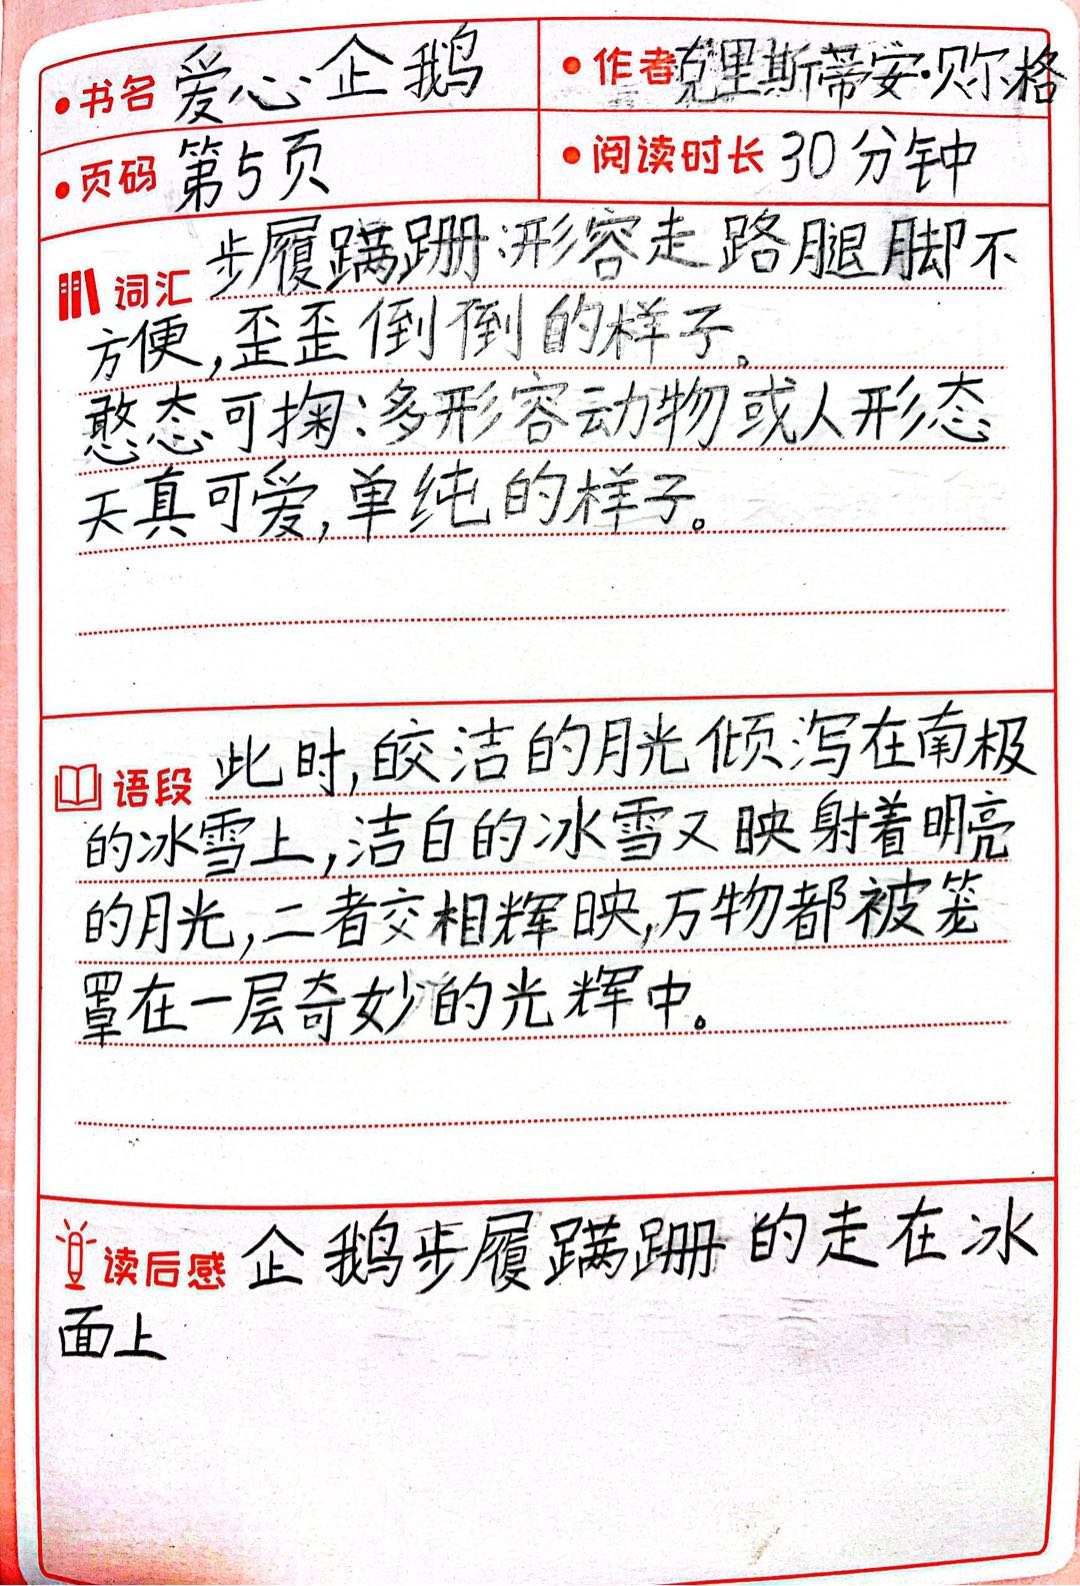 书名 爱心企鹅
作者 克里斯蒂安·贝尔格
页码 第5页
阅读时长 30分钟
词汇 步履蹒跚:形容走路腿脚不
方便,歪歪倒倒的样子。
憨态可掬:多形容动物或人形态
天真可爱,单纯的样子。
语段 此时,皎洁的月光倾泻在南极
的冰雪上,洁白的冰雪又映射着明亮
的月光,二者交相辉映,万物都被笼
罩在一层奇妙的光辉中。
读后感 企鹅步履蹒跚的走在冰
面上